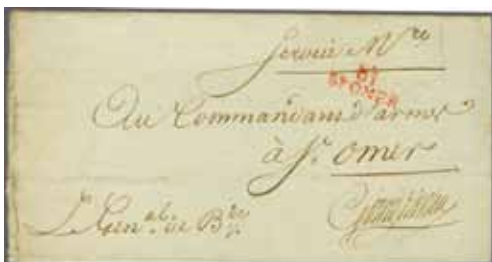 Service M.re
61
ST OMER
Au Commandant d'armes
à St. omer
Le Gen.al de B.de